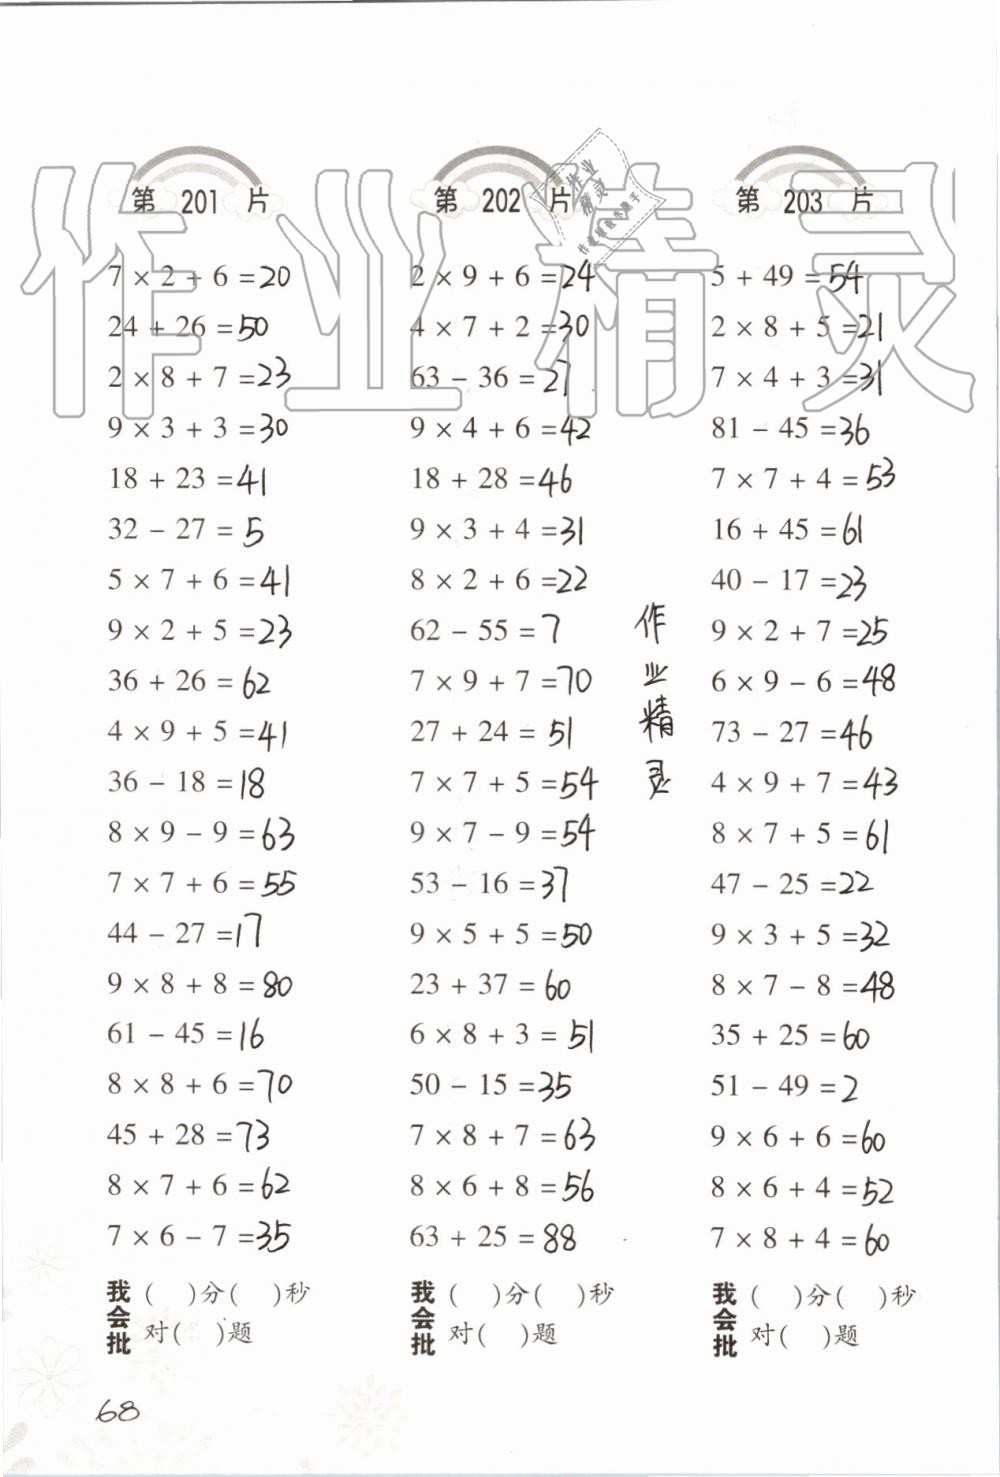 第 201 片
7 × 2 + 6 = 20
24 + 26 = 50
2 × 8 + 7 = 23
9 × 3 + 3 = 30
18 + 23 = 41
32 - 27 = 5
5 × 7 + 6 = 41
9 × 2 + 5 = 23
36 + 26 = 62
4 × 9 + 5 = 41
36 - 18 = 18
8 × 9 - 9 = 63
7 × 7 + 6 = 55
44 - 27 = 17
9 × 8 + 8 = 80
61 - 45 = 16
8 × 8 + 6 = 70
45 + 28 = 73
8 × 7 + 6 = 62
7 × 6 - 7 = 35
我会批
( )分( )秒
对( )题
第 202 片
2 × 9 + 6 = 24
4 × 7 + 2 = 30
63 - 36 = 27
9 × 4 + 6 = 42
18 + 28 = 46
9 × 3 + 4 = 31
8 × 2 + 6 = 22
62 - 55 = 7
7 × 9 + 7 = 70
27 + 24 = 51
7 × 7 + 5 = 54
9 × 7 - 9 = 54
53 - 16 = 37
9 × 5 + 5 = 50
23 + 37 = 60
6 × 8 + 3 = 51
50 - 15 = 35
7 × 8 + 7 = 63
8 × 6 + 8 = 56
63 + 25 = 88
我会批
( )分( )秒
对( )题
作业精灵
第 203 片
5 + 49 = 54
2 × 8 + 5 = 21
7 × 4 + 3 = 31
81 - 45 = 36
7 × 7 + 4 = 53
16 + 45 = 61
40 - 17 = 23
9 × 2 + 7 = 25
6 × 9 - 6 = 48
73 - 27 = 46
4 × 9 + 7 = 43
8 × 7 + 5 = 61
47 - 25 = 22
9 × 3 + 5 = 32
8 × 7 - 8 = 48
35 + 25 = 60
51 - 49 = 2
9 × 6 + 6 = 60
8 × 6 + 4 = 52
7 × 8 + 4 = 60
我会批
( )分( )秒
对( )题
68
作业精灵
作业
精灵